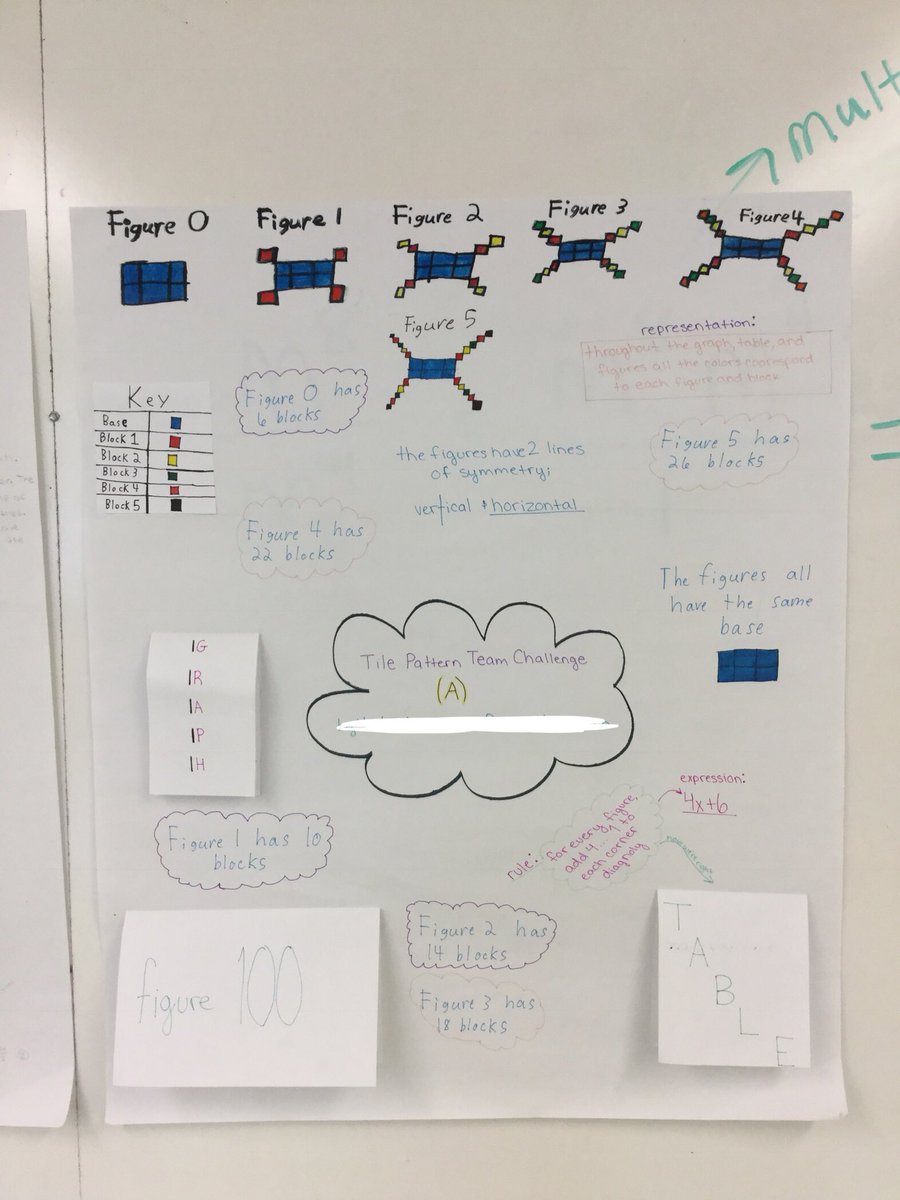 mult
Figure 0
Figure 1
Figure 2
Figure 3
Figure 4
Figure 5
representation:
throughout the graph, table, and
figures all the colors coorespond
to each figure and block
Key
Base
Block 1
Block 2
Block 3
Block 4
Block 5
Figure 0 has
6 blocks
the figures have 2 lines
of symmetry;
vertical & horizontal
Figure 5 has
26 blocks
Figure 4 has
22 blocks
The figures all
have the same
base
G
R
A
P
H
Tile Pattern Team Challenge
(A)
expression:
4x+6
rule:
for every figure,
add 4... 1 to
each corner
diagnoly
Figure 1 has 10
blocks
figure 100
Figure 2 has
14 blocks
Figure 3 has
18 blocks
T
A
B
L
E